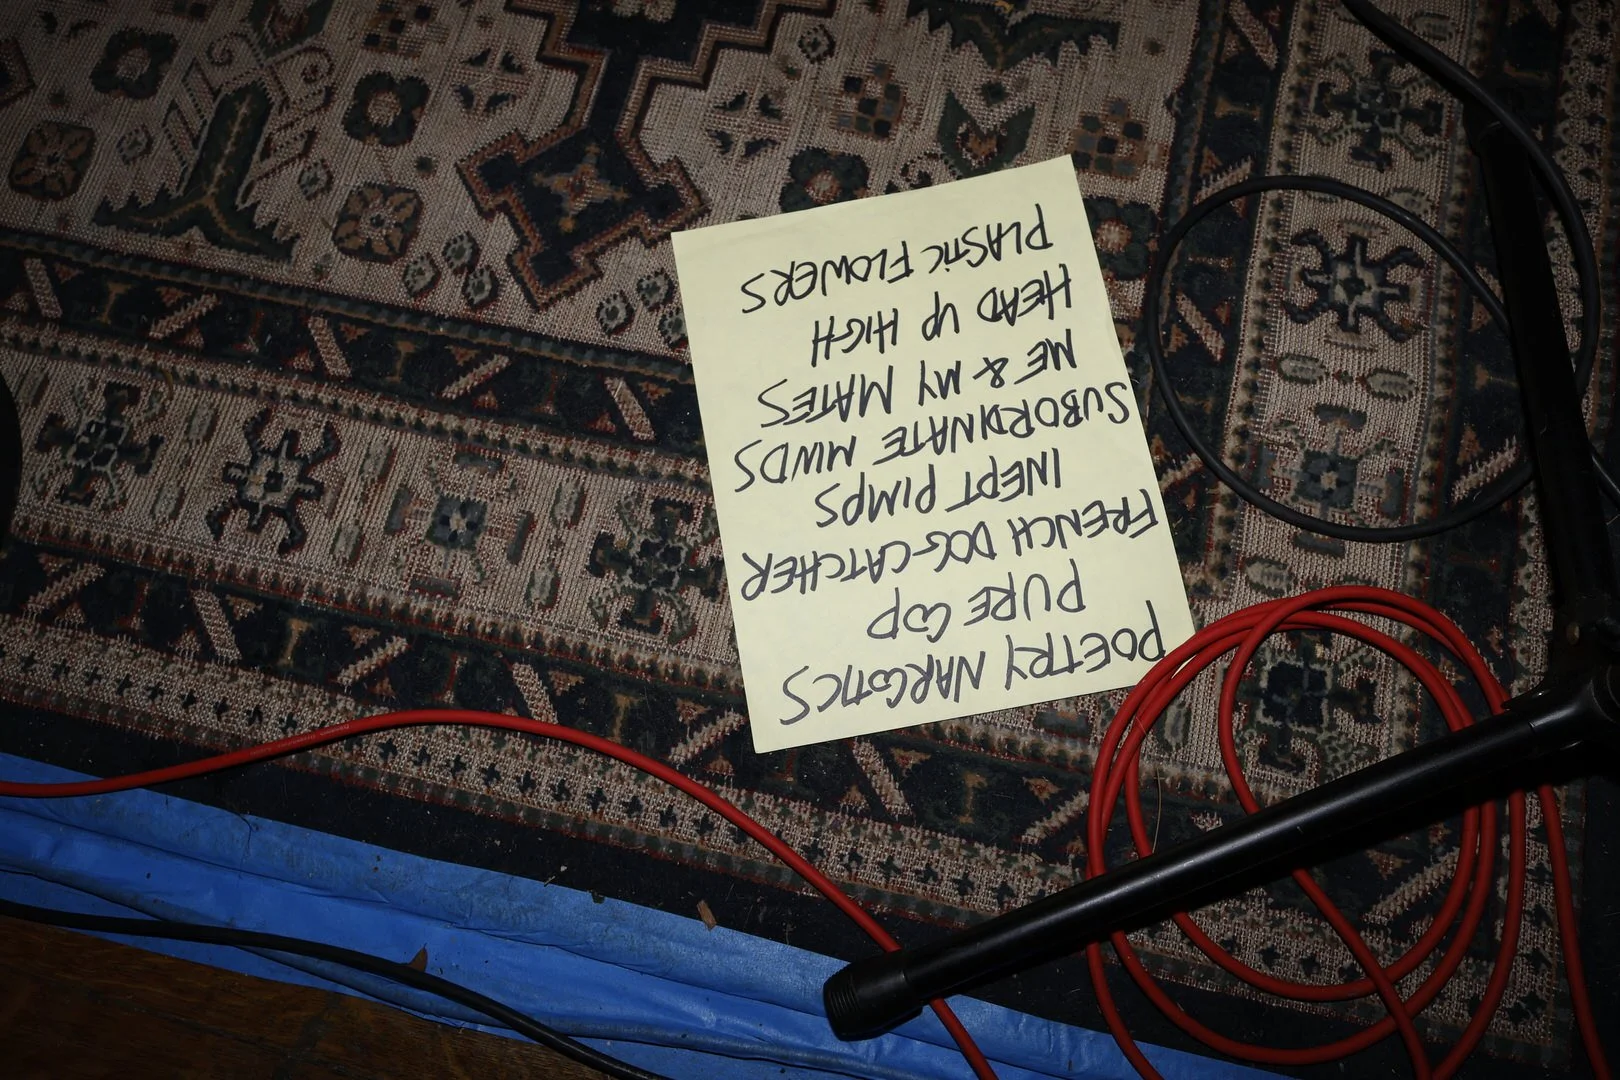 POETRY NARCOTICS
PURE COP
FRENCH DOG-CATCHER
INEPT PIMPS
SUBORDINATE MINDS
ME & MY MATES
HEAD UP HIGH
PLASTiC FLOWERS